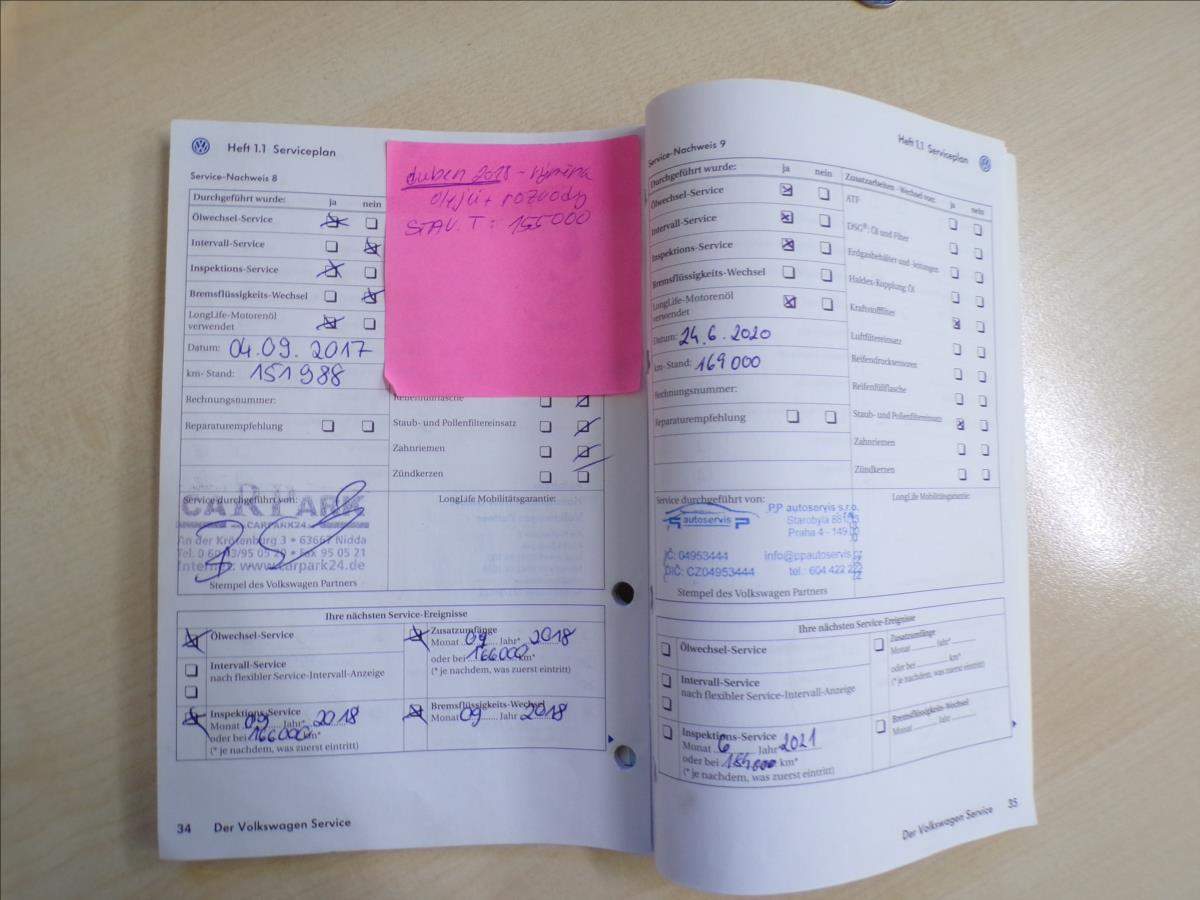 Heft 1.1 Serviceplan
Service-Nachweis 8
Durchgeführt wurde: ja nein
Ölwechsel-Service
Intervall-Service
Inspektions-Service
Bremsflüssigkeits-Wechsel
LongLife-Motorenöl
verwendet
Datum: 04.09.2017
km-Stand: 151988
Rechnungsnummer:
Reparaturempfehlung
duben 2018 - výměna
oleju + rozvody
STAV. T: 155000
Reifenfüllflasche
Staub- und Pollenfiltereinsatz
Zahnriemen
Zündkerzen
Service durchgeführt von:
CARPARK
CARPARK24.DE
An der Krötenburg 3 • 63667 Nidda
Internet: www.carpark24.de
Stempel des Volkswagen Partners
LongLife Mobilitätsgarantie:
Ihre nächsten Service-Ereignisse
Ölwechsel-Service
Intervall-Service
nach flexibler Service-Intervall-Anzeige
Inspektions-Service
Monat 09 Jahr* 2018
oder bei 166000 km*
(* je nachdem, was zuerst eintritt)
Zusatzumfänge
Monat 09 Jahr* 2018
oder bei 166000 km*
(* je nachdem, was zuerst eintritt)
Bremsflüssigkeits-Wechsel
Monat 09 Jahr 2018
34 Der Volkswagen Service
Heft 1.1 Serviceplan
Service-Nachweis 9
Durchgeführt wurde: ja nein
Ölwechsel-Service
Intervall-Service
Inspektions-Service
Bremsflüssigkeits-Wechsel
LongLife-Motorenöl
verwendet
Datum: 24.6.2020
km-Stand: 169000
Rechnungsnummer:
Reparaturempfehlung
Zusatzarbeiten - Wechsel von: ja nein
ATF
DSG®: Öl und Filter
Erdgasbehälter und -leitungen
Haldex-Kupplung: Öl
Kraftstofffilter
Luftfiltereinsatz
Reifendrucksensoren
Reifenfüllflasche
Staub- und Pollenfiltereinsatz
Zahnriemen
Zündkerzen
Service durchgeführt von:
autoservis
P.P autoservis s.r.o.
Starobylá
Praha 4 - 149 00
IČ: 04953444
info@ppautoservis.cz
DIČ: CZ04953444
tel.: 604 422 222
Stempel des Volkswagen Partners
LongLife Mobilitätsgarantie:
Ihre nächsten Service-Ereignisse
Ölwechsel-Service
Intervall-Service
nach flexibler Service-Intervall-Anzeige
Inspektions-Service
Monat 6 Jahr 2021
oder bei km*
(* je nachdem, was zuerst eintritt)
Zusatzumfänge
Monat Jahr*
oder bei km*
(* je nachdem, was zuerst eintritt)
Bremsflüssigkeits-Wechsel
Monat Jahr
Der Volkswagen Service 35